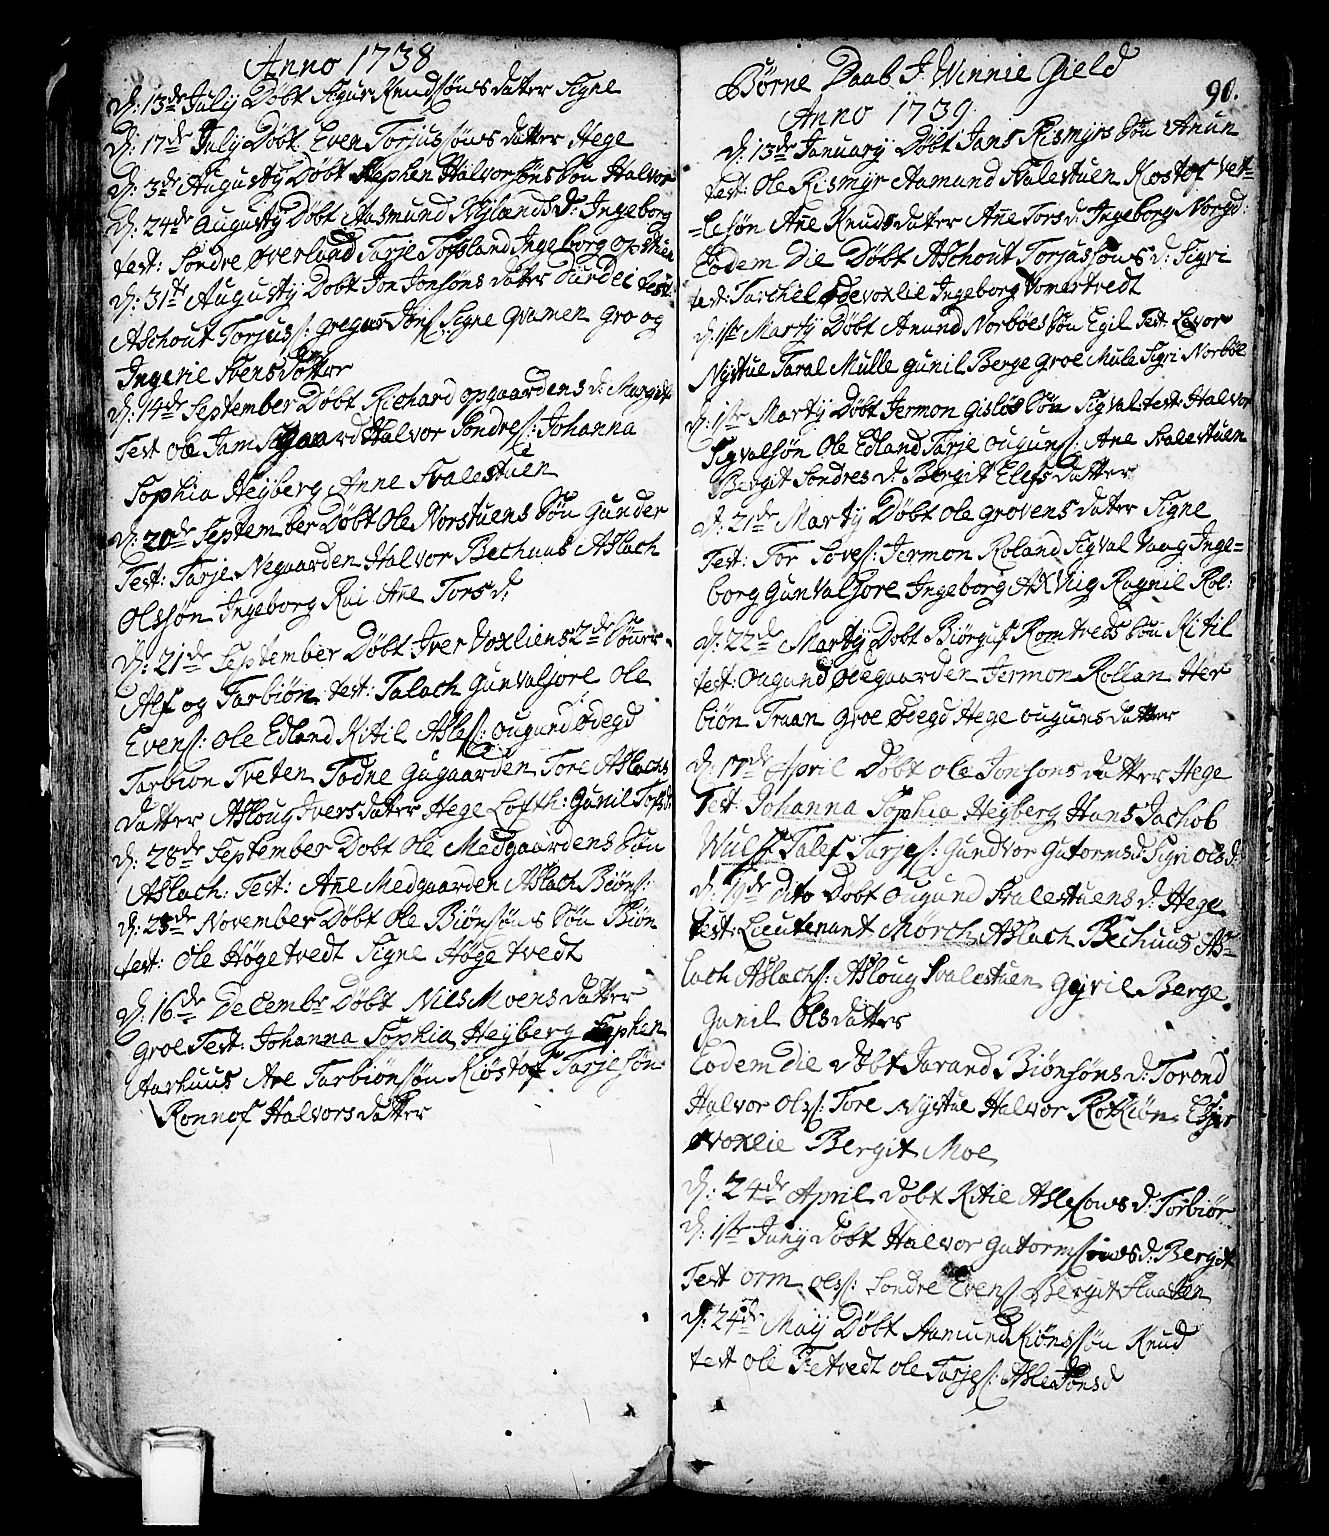 Anno 1738
D: 13de July Döbt Sigur Knudsöns datter Signe
D: 17de July Döbt Even Torjussöns datter Hege
D: 3de Augusty Döbt Stephen Halvorsöns Sön Halvor
D: 24de Augusty Döbt Aasmund Nylands d: Ingeborg
test: Sondre Øverland Tarje Ingeborg
D: 31te Augusty Döbt Jon Jonsöns datter Durdei test
Aschout Torjuss: gregar Jons: Signe Qvamen Gro og
Ingerie Svensdatter
D: 14de September Döbt Richard opgaardens d: Margit
Test Ole Jamsgaard Halvor Sondres: Johanna
Sophia Heyberg Anne Svalestuen
D: 20de September Döbt Ole Norstuens Sön Gunder
Test: Tarje Negaarden Halvor Bechuus Aslach
Olssön Ingeborg Rui Ane Tors d:
D: 21de September Döbt Iver Voxliens 2de Söner
Alf og Tarbiön. test: Talach Gunvaljore Ole
Evens: Ole Edland Kitil Asles: Ougund Ødegd
Tarbion Tveten Todne Gugaarden Tore Aslachs
datter Asloug Iversdatter Hege Lofth: Gunil Tofsd:
D: 28de September Döbt Ole Medgaardens Sön
Aslach: Test: Ane Medgaarden Aslach Biöns:
D: 23de November Döbt Ole Biönsöns Sön Biön
test: Ole Högetvedt Signe Högetvedt
D: 16de Decembr Döbt Niels Moens datter
Groe Test: Johanna Sophia Heyberg Stephen
Aarhuus Are Tarbionsön Kiöstof Tarjesön
Ronnof Halvorsdatter
Börne Daab J. Winnie Gield
90.
Anno 1739.
D: 13de January Döbt Jans Rismyrs Sön Anun
test: Ole Rismyr Aamund Svalestuen Kostof Vet=
=lesön Ane Knudsdatter Ane Torsd: Ingeborg Norgd:
Eodem Die Döbt Aschout Torjussöns d: Sigri
test: Tarchel Ødevoxlie Ingeborg Vomertvedt
D: 1ste Marty Döbt Anund Norböes Sön Egil Test Levor
Nystue Taral Mulle Gunil Berge Groe Mule Sigri Norböe
D: 1ste Marty Döbt Jermon Gislös Sön Sigval test: Halvor
Sigvalsön Ole Edland Tarje Ouguns: Ane Svalestuen
Bergit Sondres d: Bergit Elefsdatter
D: 21de Marty Döbt Ole Grovens datter Signe
Test: Tor Loves: Jermon Roland Sigval Vaag Inge=
borg Gunvaljore Ingeborg Axvig Ragnil Rol:
D: 22de Marty Döbt Biörguf Romtveds Sön Kitil
test: Ougund Ødegaarden Jermon Rollan Her
biön Traan Groe Ødegd Hege Ougunsdatter
D: 17de April Döbt Ole Jonsons datter Hege
Test: Johanna Sophia Heyberg Hans Jachob
Wulff Talef Tarjes: Gundvor Gutormsd: Sigri Olsd:
D: 19de Dito Döbt Ougund Svalestuens d: Hege
test: Lieutenant Mörch Aslach Bechuus As=
lach Aslachs: Asloug Svalestuen Gyril Berge
Gunil Olsdatter
Eodem die Döbt Jarand Biönsöns d: Torond
Halvor Olss: Tore Nystue Halvor Rotkiön
Voxlie Bergit Moe
D: 24de April Döbt Kitil Aslesons d: Torbiör
D: 1ste Juny Döbt Halvor Gutormsöns d: Bergit
Test Orm Olss: Sondre Evens Bergit Staalen
D: 24de May Döbt Aamund Kiönssön Knud
test Ole Tvetvedt Ole Tarjes: Asle Jonsd